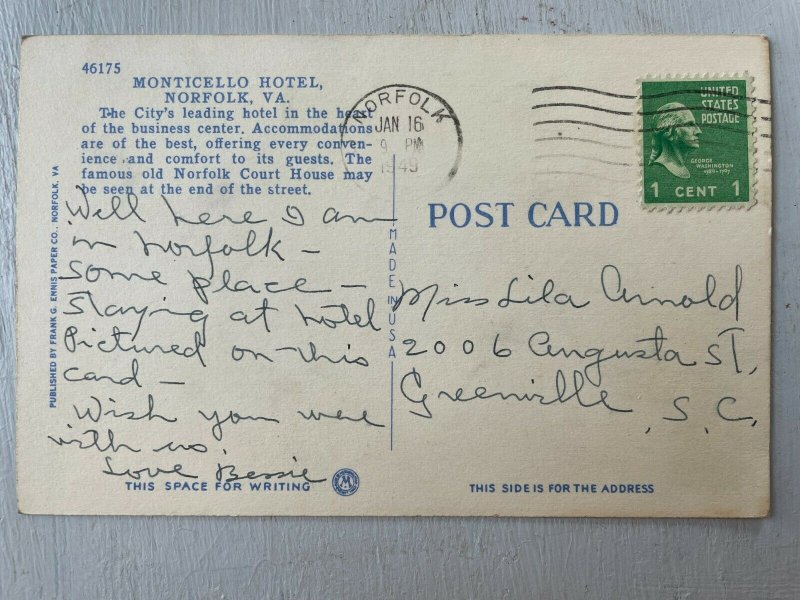 46175
MONTICELLO HOTEL,
NORFOLK, VA.
The City's leading hotel in the heart
of the business center. Accommodations
are of the best, offering every conven-
ience and comfort to its guests. The
famous old Norfolk Court House may
be seen at the end of the street.
Well here I am
in Norfolk —
Some place —
Staying at hotel
Pictured on this
card —
Wish you were
with us.
Love Bessie
THIS SPACE FOR WRITING
PUBLISHED BY FRANK G. ENNIS PAPER CO., NORFOLK, VA
MADE IN USA
NORFOLK
JAN 16
9 PM
1949
UNITED
STATES
POSTAGE
GEORGE
WASHINGTON
1789-1797
1 CENT 1
POST CARD
Miss Lila Arnold
2006 Augusta St,
Greenville, S.C.
THIS SIDE IS FOR THE ADDRESS